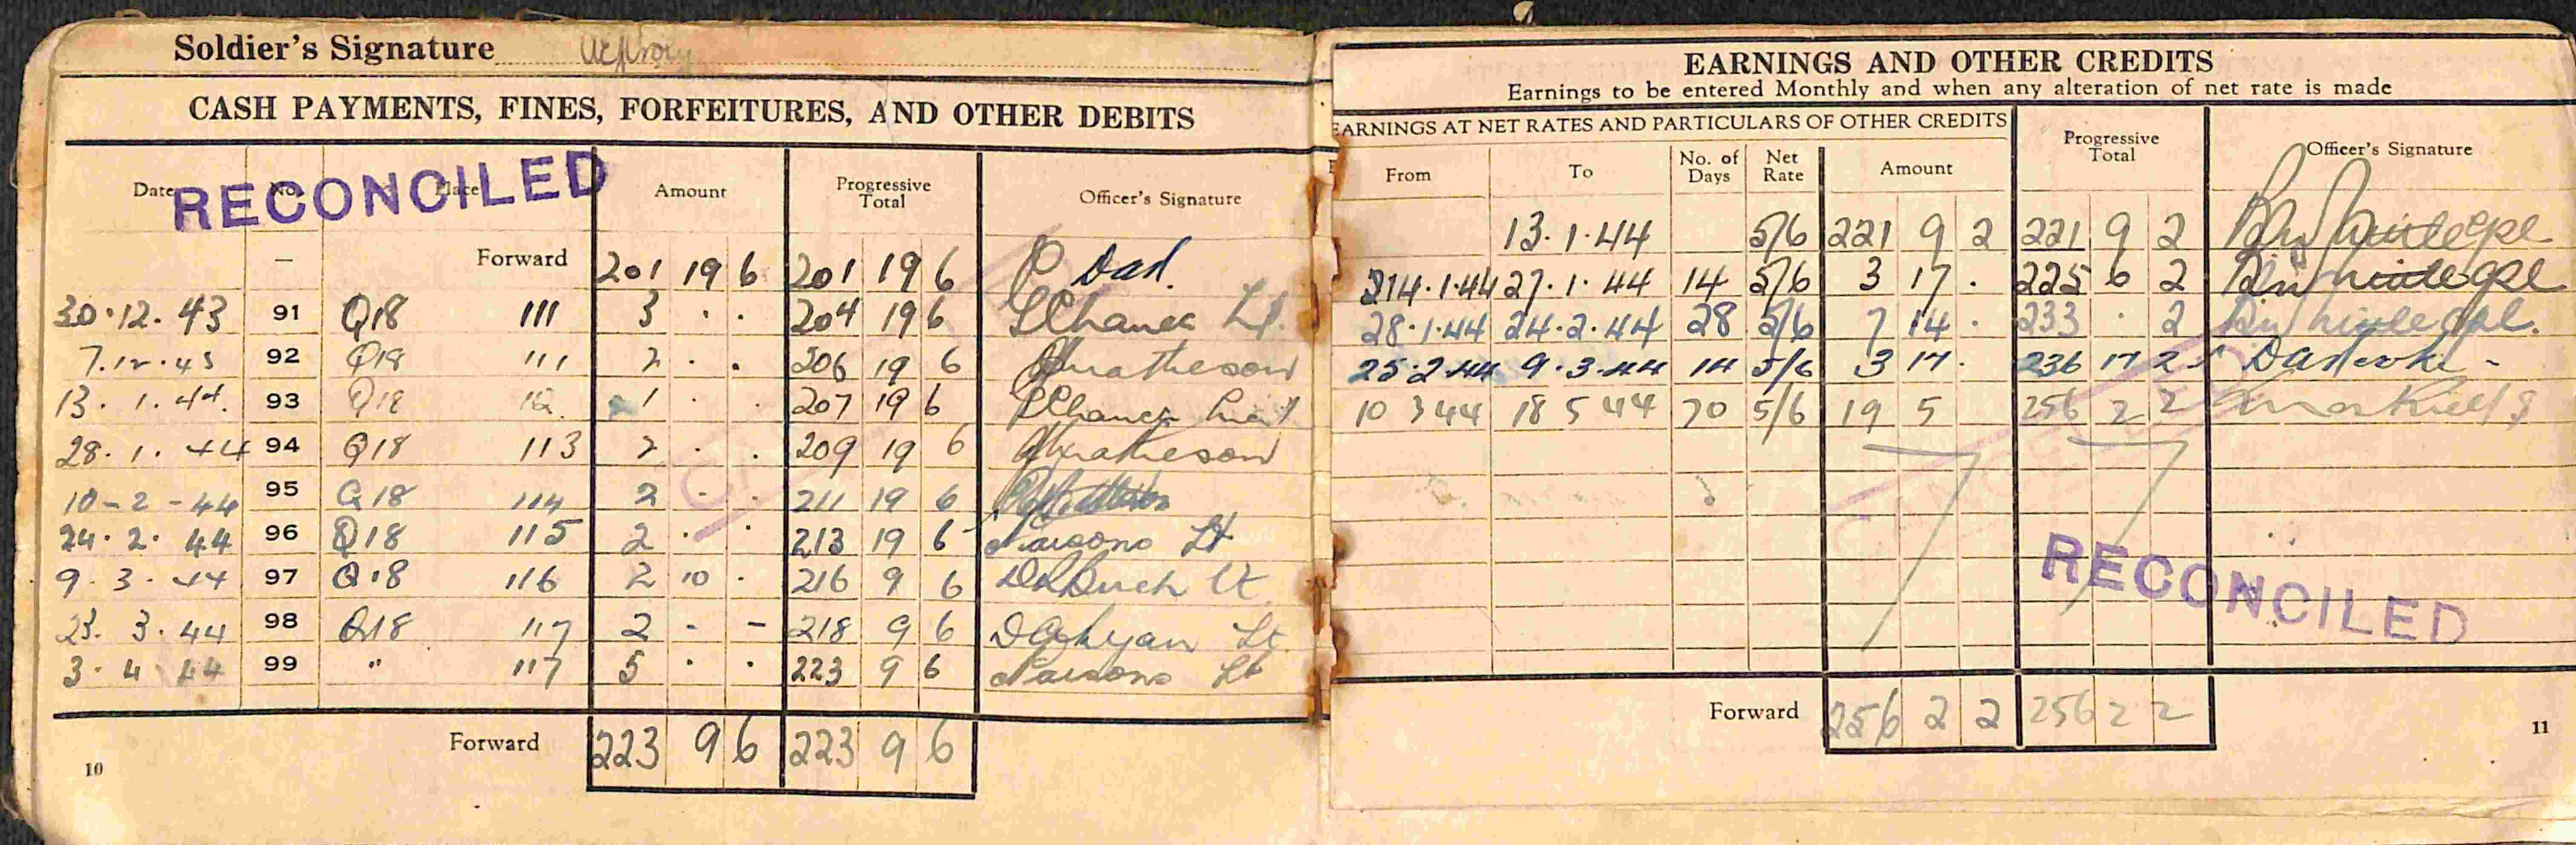 Soldier's Signature
CASH PAYMENTS, FINES, FORFEITURES, AND OTHER DEBITS
Date No. Place Amount Progressive Total Officer's Signature
RECONCILED
— Forward 201 19 6 201 19 6
30·12·43 91 Q18 111 3 · · 204 19 6 Lt.
7.12·43 92 Q18 111 2 · · 206 19 6 Matheson
13·1·44. 93 Q18 112 1 · · 207 19 6
28·1·44 94 Q18 113 2 · · 209 19 6 Matheson
10-2-44 95 Q18 114 2 · · 211 19 6
24·2·44 96 Q18 115 2 · · 213 19 6 Parsons Lt
9·3·44 97 Q18 116 2 10 · 216 9 6 Lt
23·3·44 98 Q18 117 2 - - 218 9 6 Lt
3·4·44 99 " 117 5 · · 223 9 6 Parsons Lt
Forward 223 9 6 223 9 6
10
EARNINGS AND OTHER CREDITS
Earnings to be entered Monthly and when any alteration of net rate is made
EARNINGS AT NET RATES AND PARTICULARS OF OTHER CREDITS
From To No. of Days Net Rate Amount Progressive Total Officer's Signature
13·1·44 5/6 221 9 2 221 9 2
14·1·44 27·1·44 14 5/6 3 17 · 225 6 2
28·1·44 24·2·44 28 5/6 7 14 · 233 · 2
25·2·44 9·3·44 14 5/6 3 17 · 236 17 2
10 3 44 18 5 44 70 5/6 19 5 256 2 2
RECONCILED
Forward 256 2 2 256 2 2
11